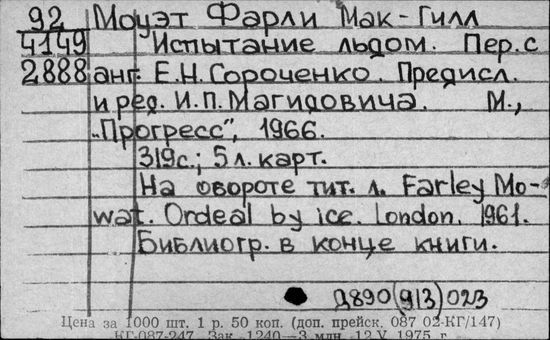 92 Моуэт Фарли Мак-Гилл
4149 Испытание льдом. Пер. с
2888 анг. Е.Н. Гороченко. Предисл.
и ред. И.П. Магидовича. М.,
„Прогресс", 1966.
319с.; 5 л. карт.
На обороте тит. л. Farley Mo-
wat. Ordeal by ice. London. 1961.
Библиогр. в конце книги.
Д890(913)023
Цена за 1000 шт. 1 р. 50 коп. (доп. прейск. 087 02-КГ/147)
КГ-087-247. Зак. 1240—3 млн. 12.V 1975 г.